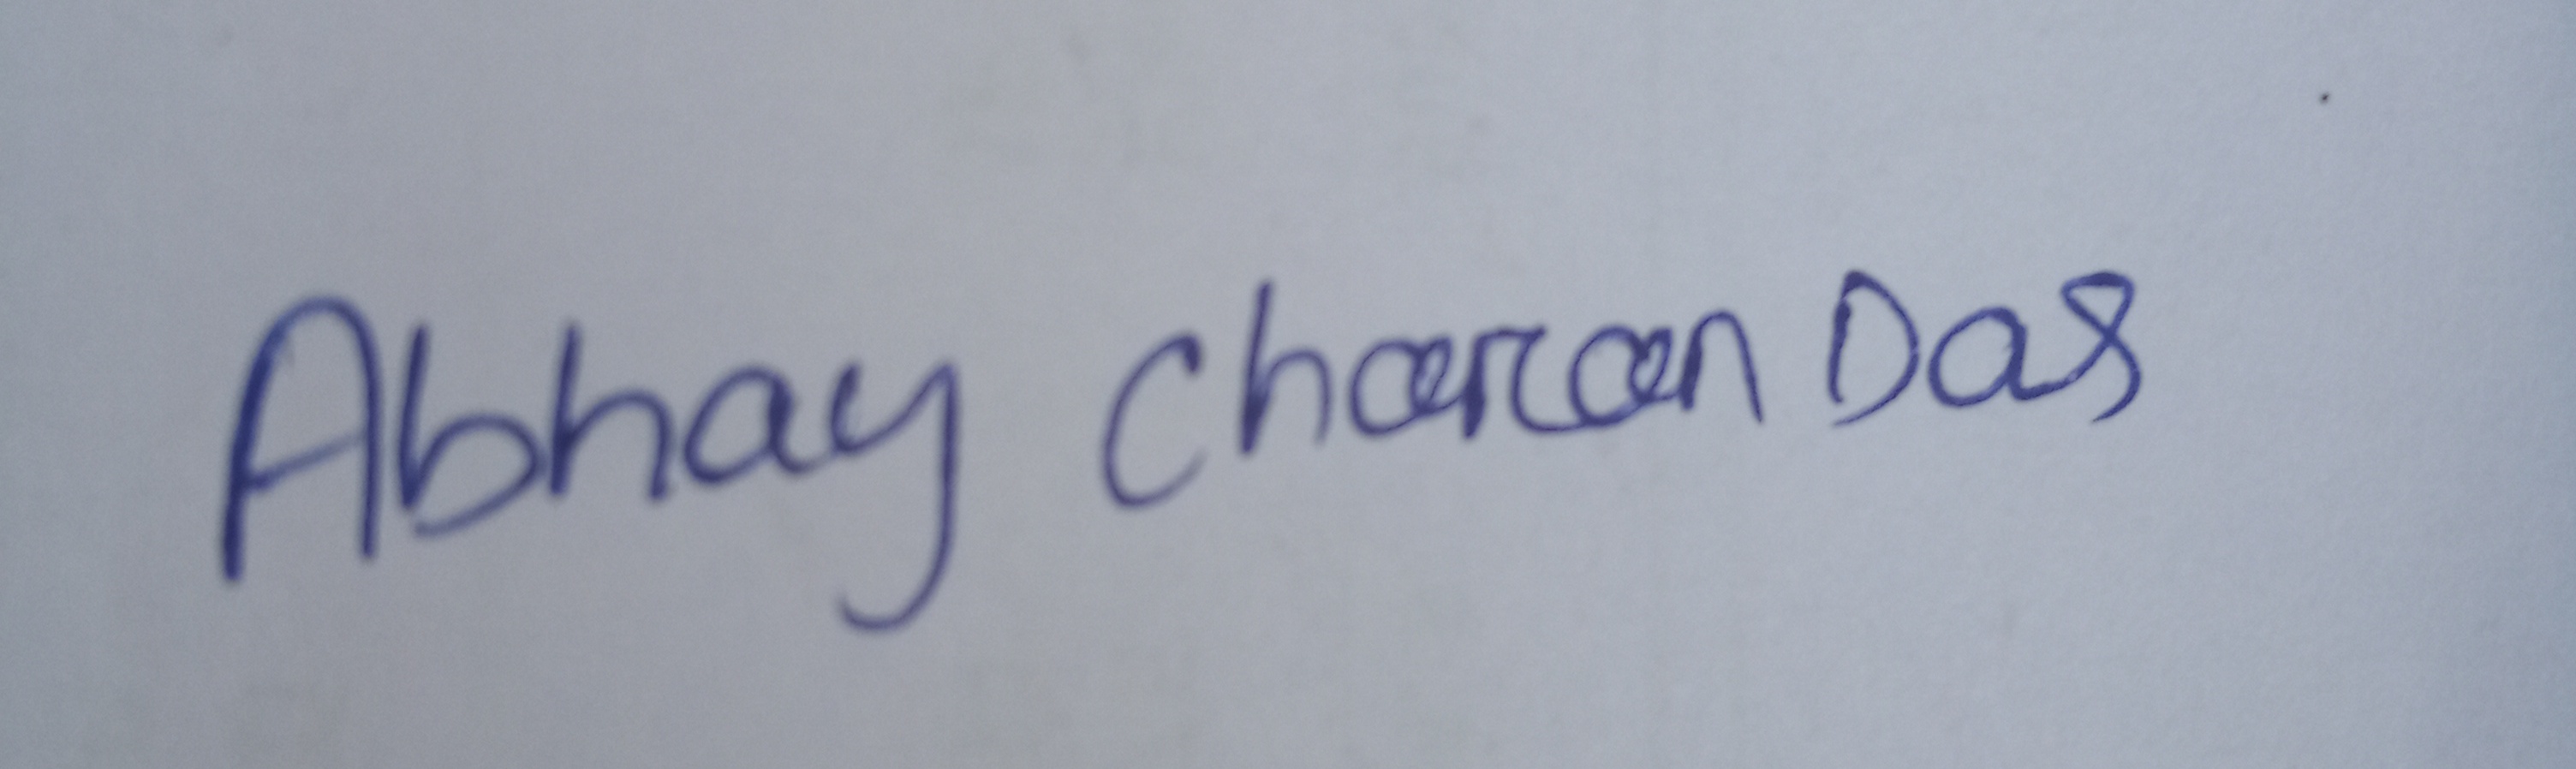 Abhay Charan Das